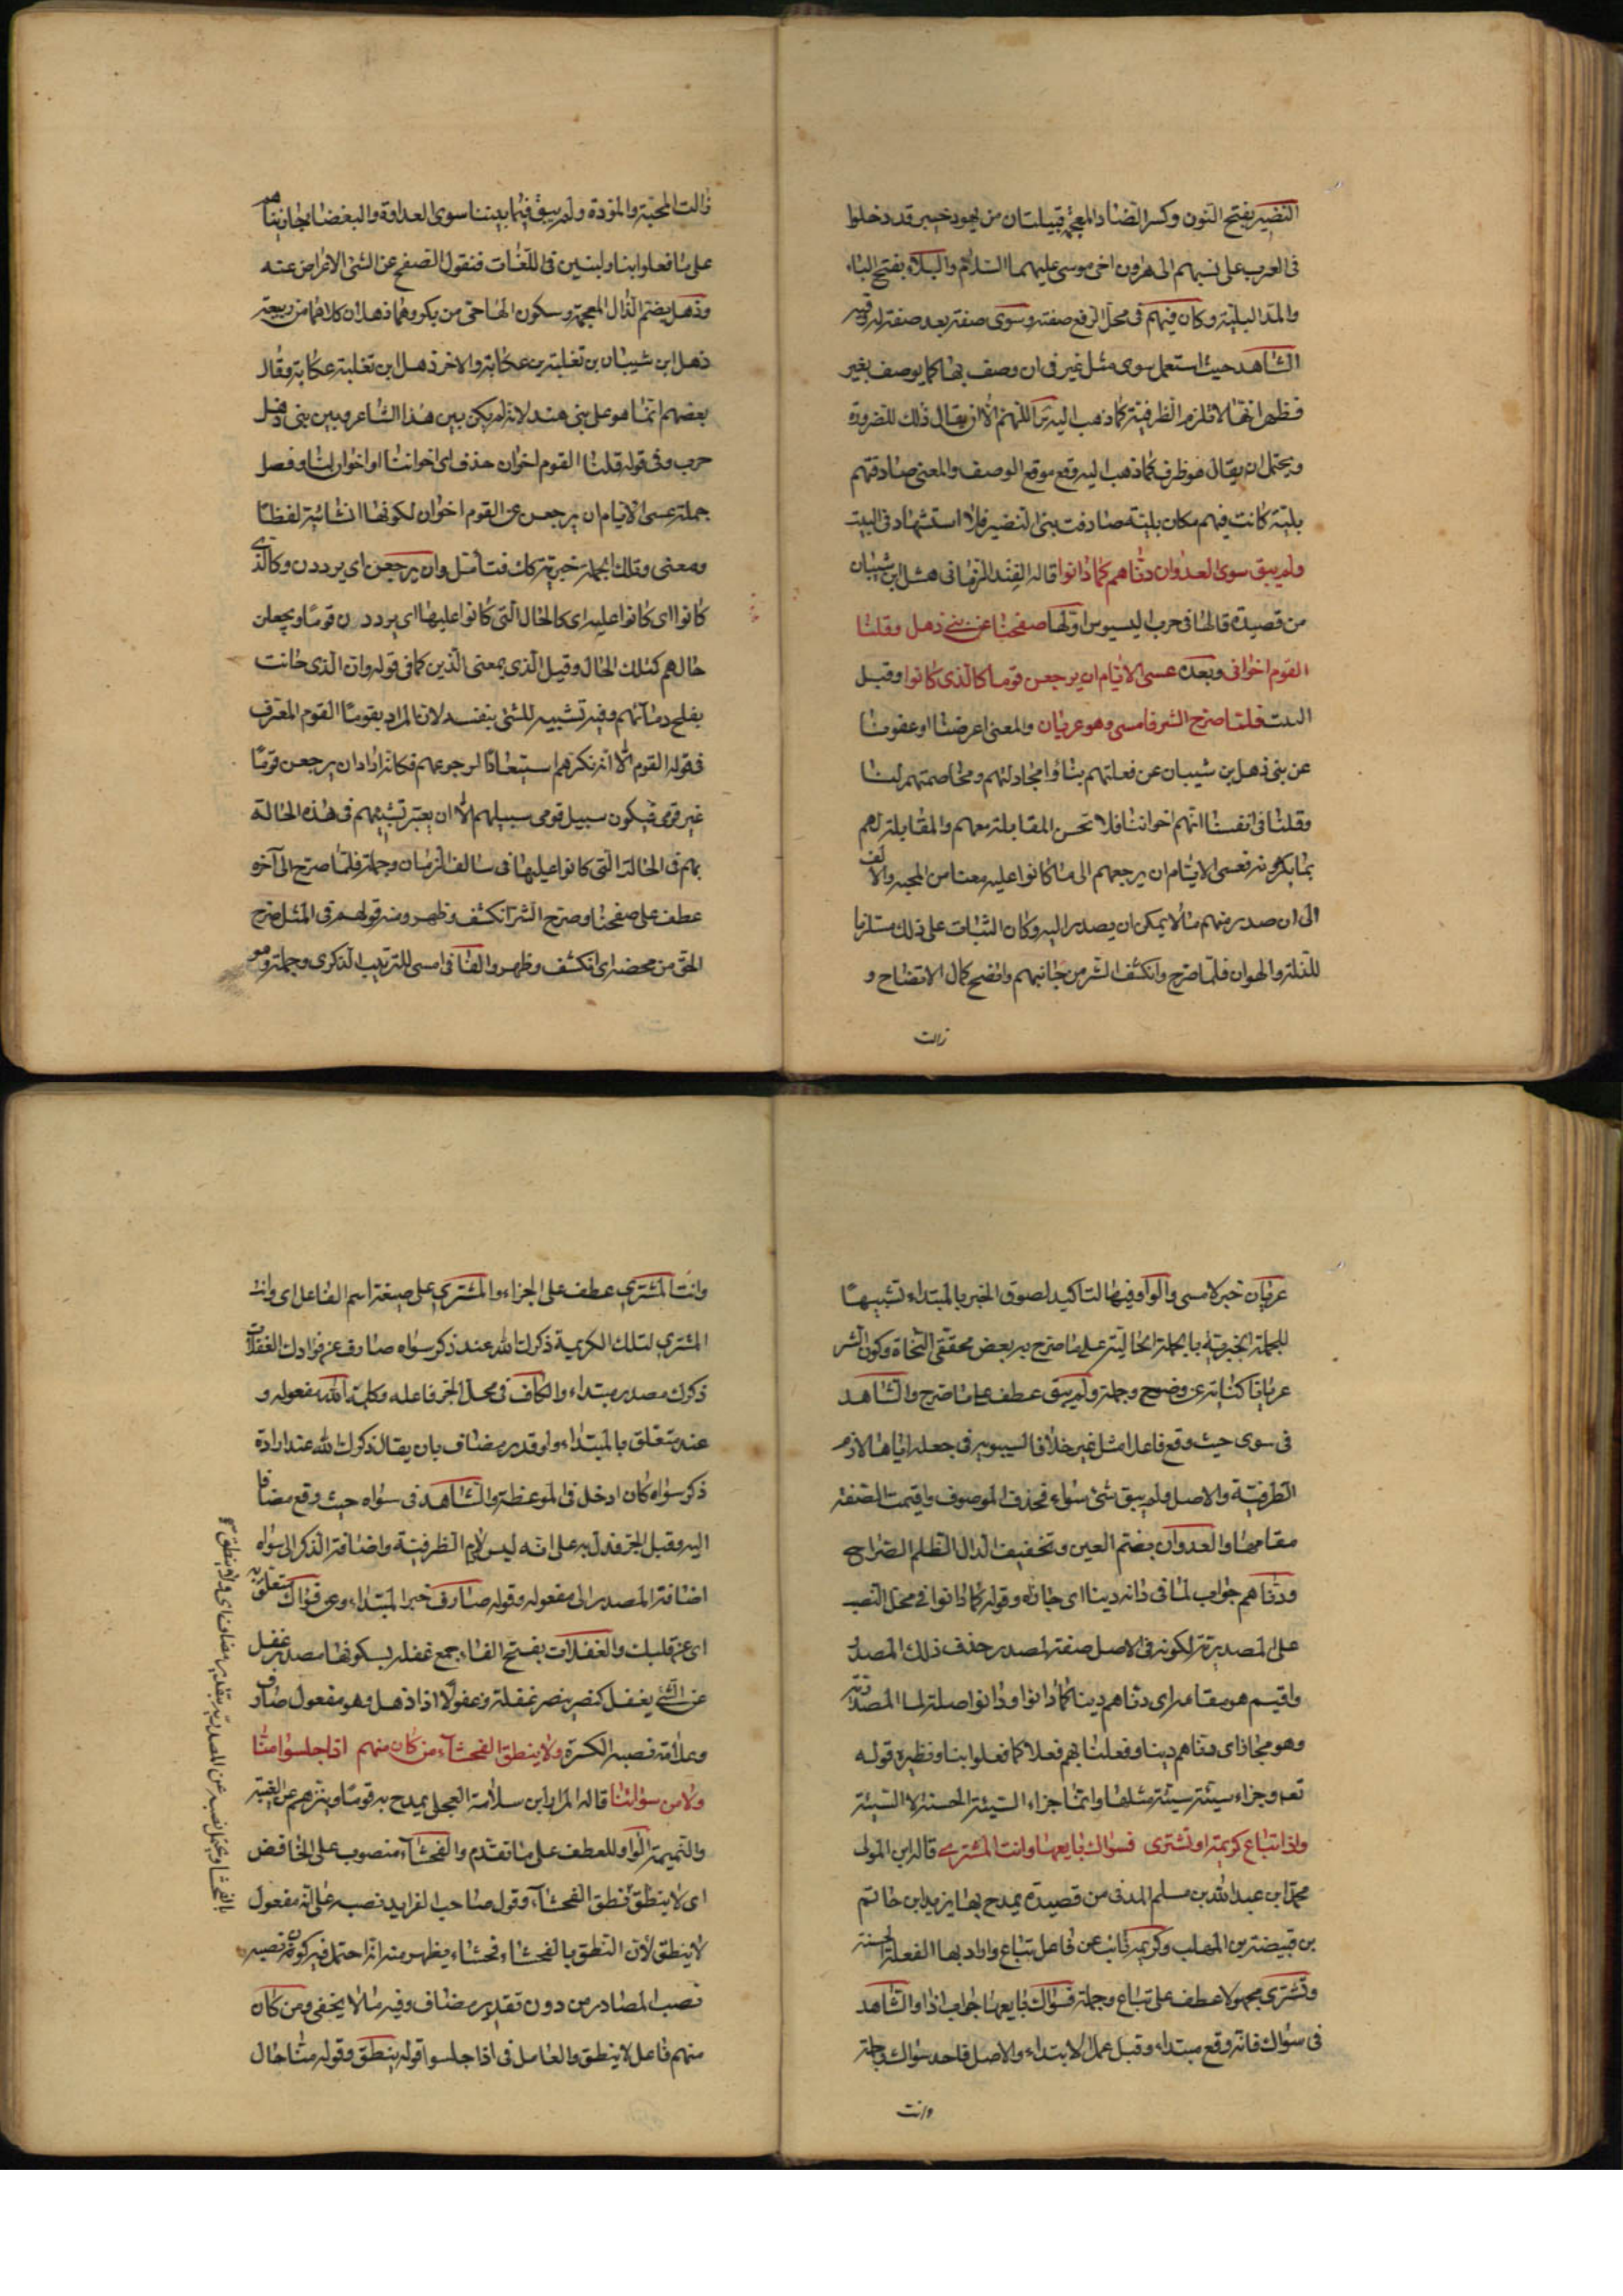 النضير بفتح النون وكسر الضاد المعجمة قبيلتان من يهود خيبر قد دخلوا
فى العرب على نسبهم الى هارون اخى موسى عليهما السلام والبلاء بفتح الباء
والمد البلية وكان فيهم فى محل الرفع صفته وسوى صفة بعد صفة له وفيه
الشاهد حيث استعمل سوى مثل غير فى ان وصف بها كما يوصف بغير
فظهر انها لا تلزم الظرفية كما ذهب اليه س اللهم الا ان يقال ذلك للضرورة
ويحتمل ان يقال هو ظرف كما ذهب اليه وقع موقع الوصف والمعنى صادفتهم
بلية كانت فيهم مكان بلية صادفت بنى النضير فلا استشهاد فى البيت
ولم يبق سوى العدوان دناهم كما دانوا قاله الفند الزمانى هشل ابن شيبان
من قصيدة قالها فى حرب البسوس اولها صفحنا عن بنى ذهل وقلنا
القوم اخوانى وبعده عسى الايام ان يرجعن قوما كالذى كانوا وقبل
البيت فلما صرح الشر فامسى وهو عريان والمعنى اعرضنا او عفونا
عن بنى ذهل بن شيبان عن فعلتهم بنا و مجادلتهم ومخاصمتهم لنا
وقلنا فى انفسنا انهم اخواننا فلا تحسن المقابلة معهم والمقابلة لهم
بما يكرهونه فعسى الايام ان يرجعهم الى ما كانوا عليه معنا من المحبه والالف
الى ان صدر منهم ما لا يمكن ان يصدر اليه وكان الثبات على ذلك مستلزما
للذلة والهوان فلما صرح وانكشف الشر من جانبهم واتضح كمال الاتضاح و
زالت
زالت المحبة والمودة ولم يبق فيما بيننا سوى العداوة والبغضاء جازيناهم
على ما فعلوا بنا وابتين فى اللغات فنقول الصفح عن الشئ الاعراض عنه
وذهل بضم الذال المعجمة وسكون الهاء حى من بكر وهما ذهلان كلاهما من ربيعة
ذهل ابن شيبان بن ثعلبة بن عكابة والاخر ذهل ابن ثعلبة عكابة وقال
بعضهم انما هو على بنى هند لانه لم يكن بين هذا الشاعر وبين بنى ذهل
حرب وفى قوله قلنا القوم اخوان حذف اى اخواننا او اخوان لنا وفصل
جملة عسى الايام ان يرجعن عن القوم اخوان لكونها انشائية لفظا
ومعنى وتلك الجملة خبرية كك فتأمل وان يرجعن اى يرددن وكالذى
كانوا اى كانوا عليه اى كالحال التى كانوا عليها اى يرددن قوما ويجعلن
حالهم كتلك الحال وقيل الذى بمعنى الذين كما فى قوله وان الذى حانت
بفلج دمائهم وفيه تشبيه للشئ بنفسه لان المراد بقوما القوم المعرف
فى قوله القوم الا انه نكرهم استبعادا لرجوعهم فكانه اراد ان يرجعن قوما
غير قومى فيكون سبيل قومى سبيلهم الا ان يعتبر تشبيههم فى هذه الحالة
بهم فى الحالة التى كانوا عليها فى سالف الزمان وجملة فلما صرح الى آخره
عطف على صفحنا وصرح الشر انكشف وظهر ومنه قولهم فى المثل صرح
الحق من محضه اى انكشف وظهر والفاء فى امسى للترتيب الذكرى وجملة وهو
عريان خبر لامسى والواو فيها لتاكيد لصوق الخبر بالمبتداء تشبيها
للجملة الخبرية بالجملة الحالية على ما صرح به بعض محققى النحاة وكون الشر
عريانا كناية عن وضوح وجملة ولم يبق عطف على ما صرح والشاهد
فى سوى حيث وقع فاعلا مثل غير خلافا لسيبويه فى جعله اياها لازم
الظرفية والاصل ولم يبق شئ سواء فحذف الموصوف واقيمت الصفة
مقامها والعدوان بضم العين وتخفيف الدال الظلم الصراح
ودناهم جواب لما فى دانه دينا اى جازاه وقوله كما دانوا فى محل النصب
على المصدرية لكونه فى الاصل صفة لمصدر حذف ذلك المصدر
واقيم هو مقامه اى دناهم دينا كما دانوا ودانوا صلة لما المصدرية
وهو مجاز اى دناهم دينا وفعلنا بهم فعلا كما فعلوا بنا ونظيره قوله
تعه وجزاء سيئة سيئة مثلها وانما جزاء السيئة الحسنة لا السيئة
واذا تباع كريمة او تشترى فسواك بايعها وانت المشترى قاله ابن المولى
محمد ابن عبد الله بن مسلم المدنى من قصيدة يمدح بها يزيد ابن حاتم
بن قبيصة بن المهلب وكريمه نائب عن فاعل تباع واراد بها الفعلة الحسنة
وتشترى مجهولا عطف على تباع وجملة فسواك بايعها جواب اذا والشاهد
فى سواك فانه وقع مبتداء وقبل عمل الابتداء والاصل فاحد سواك وجملة
وانت
وانت المشترى عطف على الجزاء والمشترى على صيغة اسم الفاعل اى وانت
المشترى لتلك الكريمة ذكرك الله عند ذكر سواه صارف عن فؤادك الغفلات
ذكرك مصدر مبتداء والكاف فى محل الجر فاعله وكلمة الله مفعوله و
عند متعلق بالمبتداء ولو قدر مضاف بان يقال ذكرك الله عند ارادة
ذكر سواه كان ادخل فى الموعظة والشاهد فى سواه حيث وقع مضافا
اليه وقبل الجر فدل به على انه ليس لازم الظرفية واضافة الذكر الى سواه
اضافة المصدر الى مفعوله وقوله صارف خبر المبتداء وعن فؤادك متعلق به
اى عن قلبك والغفلات بفتح الفاء جمع غفلة بسكونها مصدر غفل
عن الشئ يغفل كنصر ينصر غفلة وغفولا اذا ذهل وهو مفعول صارف
وعلامة نصبه الكسرة ولا ينطق الفحشاء من كان منهم اذا جلسوا منا
ولا من سوائنا قاله المرار ابن سلامة العجلى يمدح به قوما وينزههم عن الغيبة
والنميمة الواو للعطف على ما تقدم والفحشاء منصوب على الخافض
اى لا ينطق نطق الفحشاء وقول صاحب الفرايد نصبه على انه مفعول
لا ينطق لان النطق بالفحشاء فحشاء يظهر منه انه احتمل فيه كونه نصبه
نصب المصادر من دون تقدير مضاف وفيه ما لا يخفى ومن كان
منهم فاعل لا ينطق والعامل فى اذا جلسوا قوله ينطق وقوله منا حال